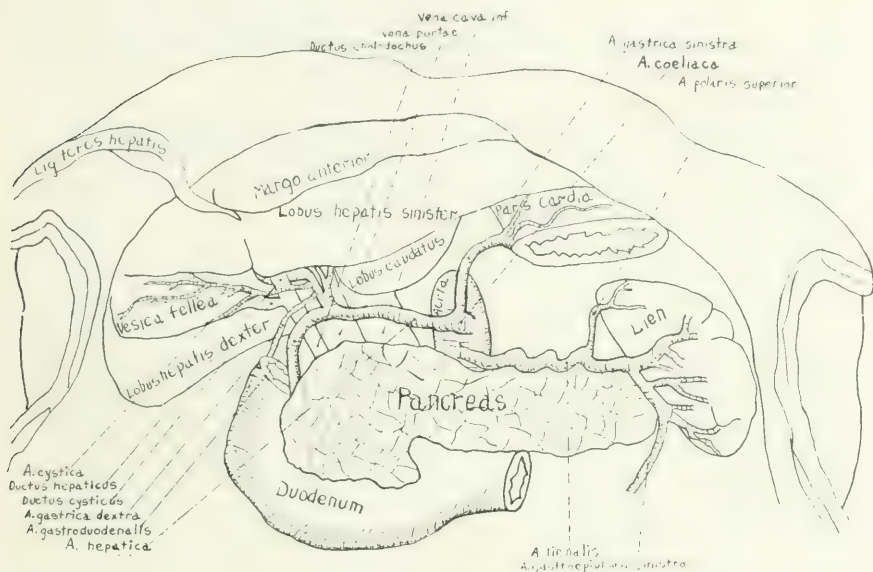 Vena cava inf
Vena portae
Ductus choledochus
A gastrica sinistra
A. coeliaca
A polaris superior
Lig teres hepatis
Margo anterior
Lobus hepatis sinister
Pars cardia
Lobus caudatus
Aorta
Vesica fellea
Lien
Lobus hepatis dexter
Pancreas
Duodenum
A. cystica
Ductus hepaticus
Ductus cysticus
A. gastrica dextra
A. gastroduodenalis
A. hepatica
A. lienalis
A. gastroepiploica sinistra